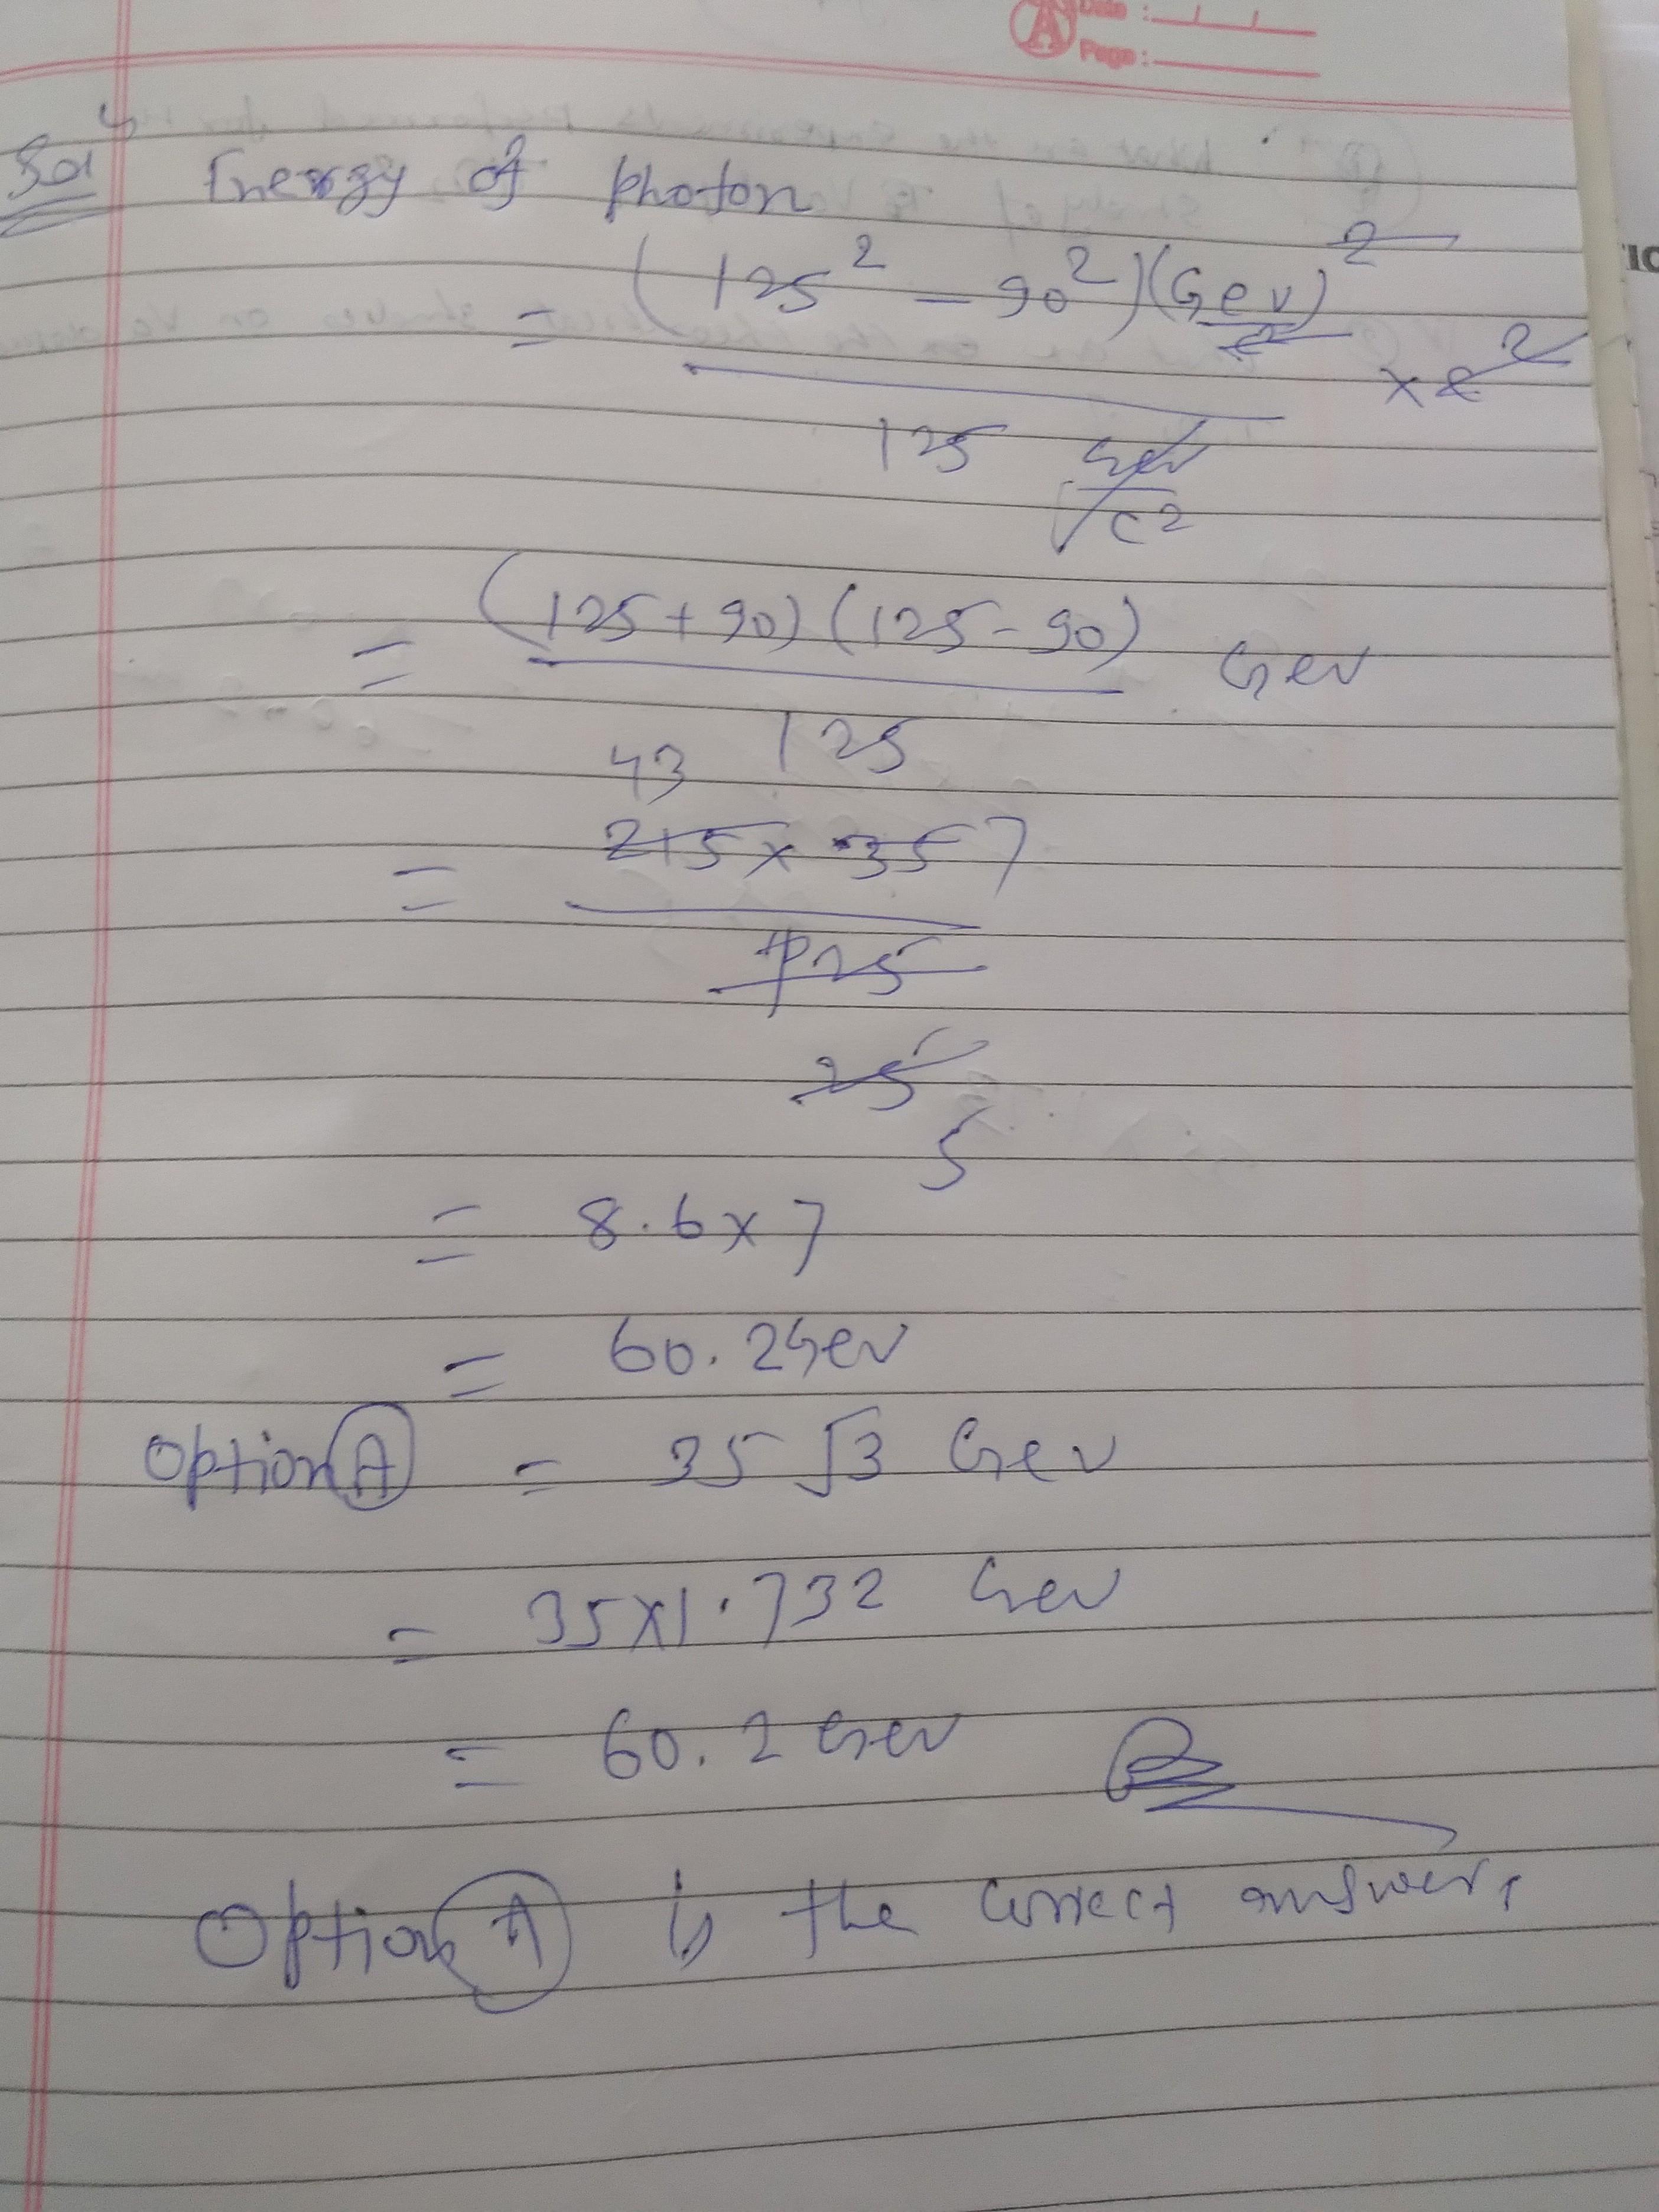 Date :
Page :
Sol
Energy of photon
= (125² - 90²)(Gev)² × c²
125 Gev/c²
= (125+90)(125-90) Gev
125
43
= 215 × 35 7
125
25
5
= 8.6×7
= 60.2Gev
Option A = 35 √3 Gev
= 35×1.732 Gev
= 60.2 Gev
Option A is the correct answer.